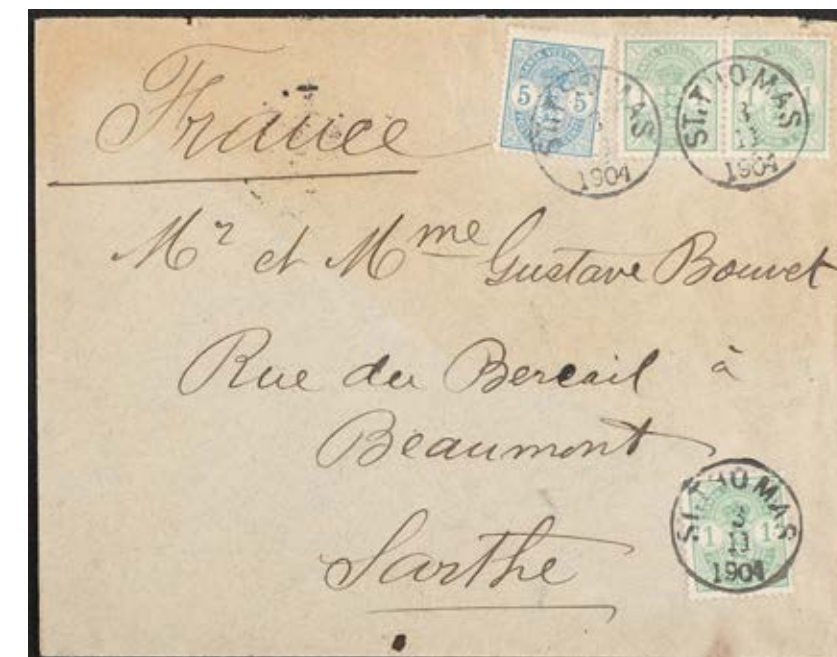 France
5 5
1
ST. THOMAS
1904
ST. THOMAS
3
11
1904
Mr et Mme Gustave Bouvet
Rue du Bercail à
Beaumont
Sarthe
1 1
ST. THOMAS
3
11
1904